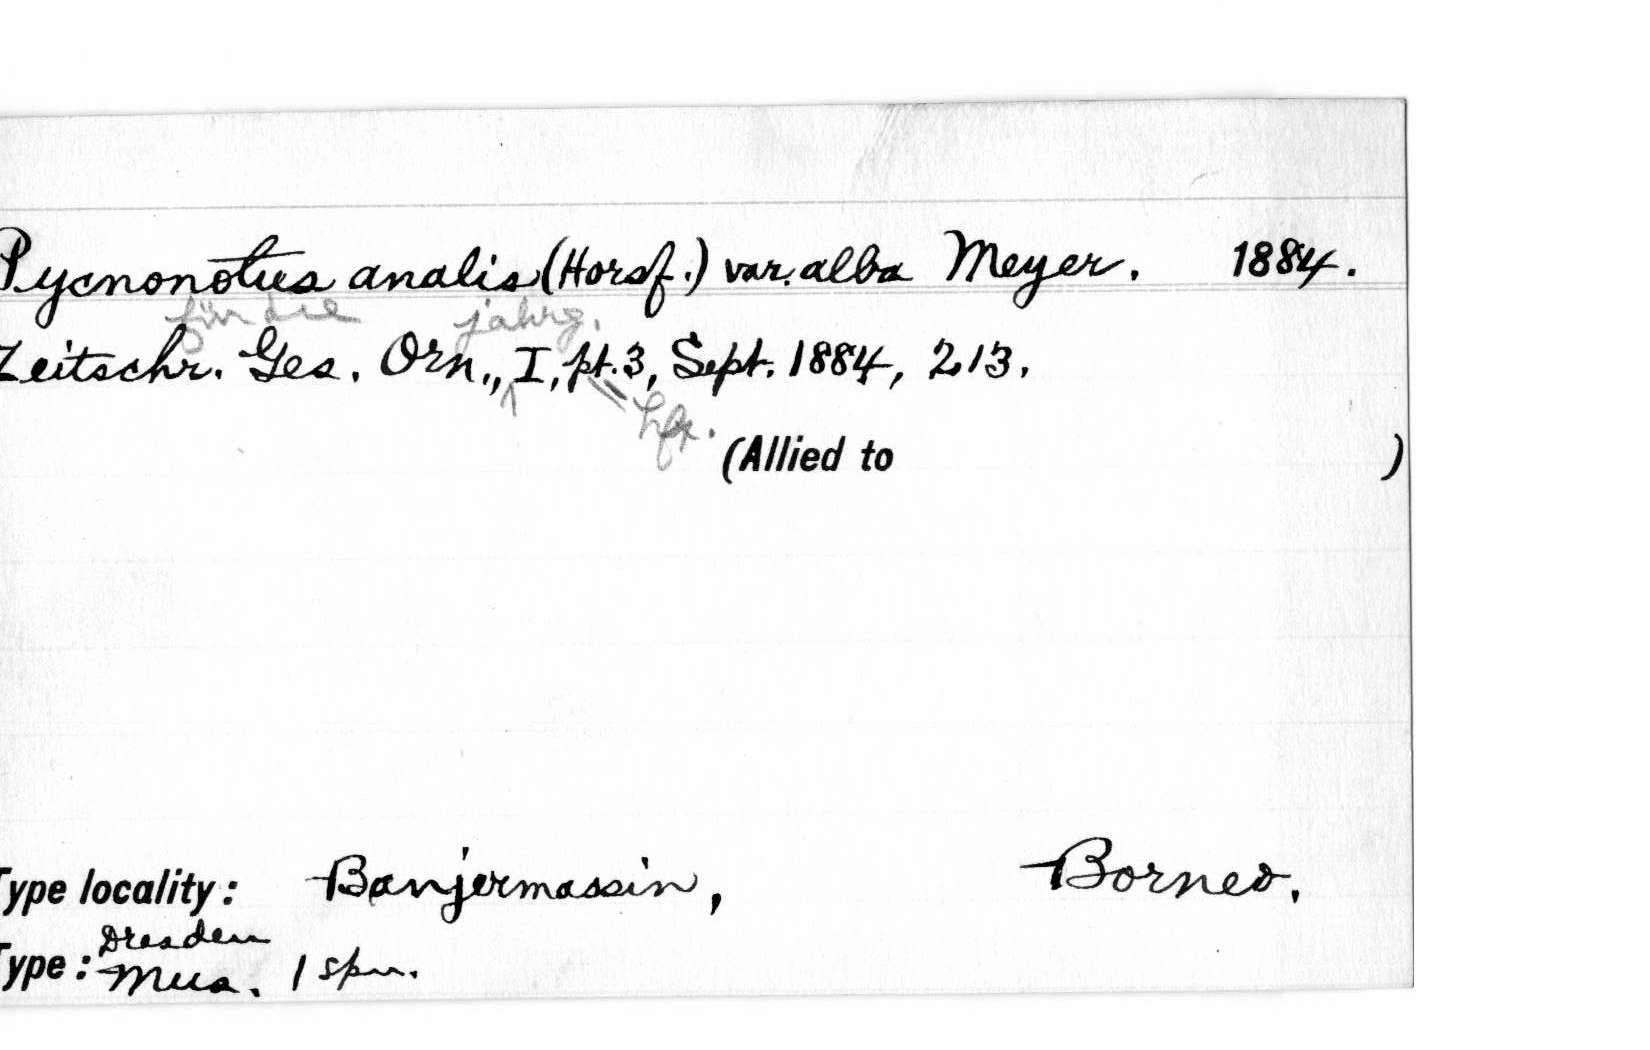 Pycnonotus analis (Horsf.) var. alba Meyer. 1884.
für die jahrg.
Zeitschr. Ges. Orn., I, pt. 3, Sept. 1884, 213.
hft.
(Allied to )
Type locality: Banjermassin, Borneo.
Dresden
Type: Mus. 1 spm.